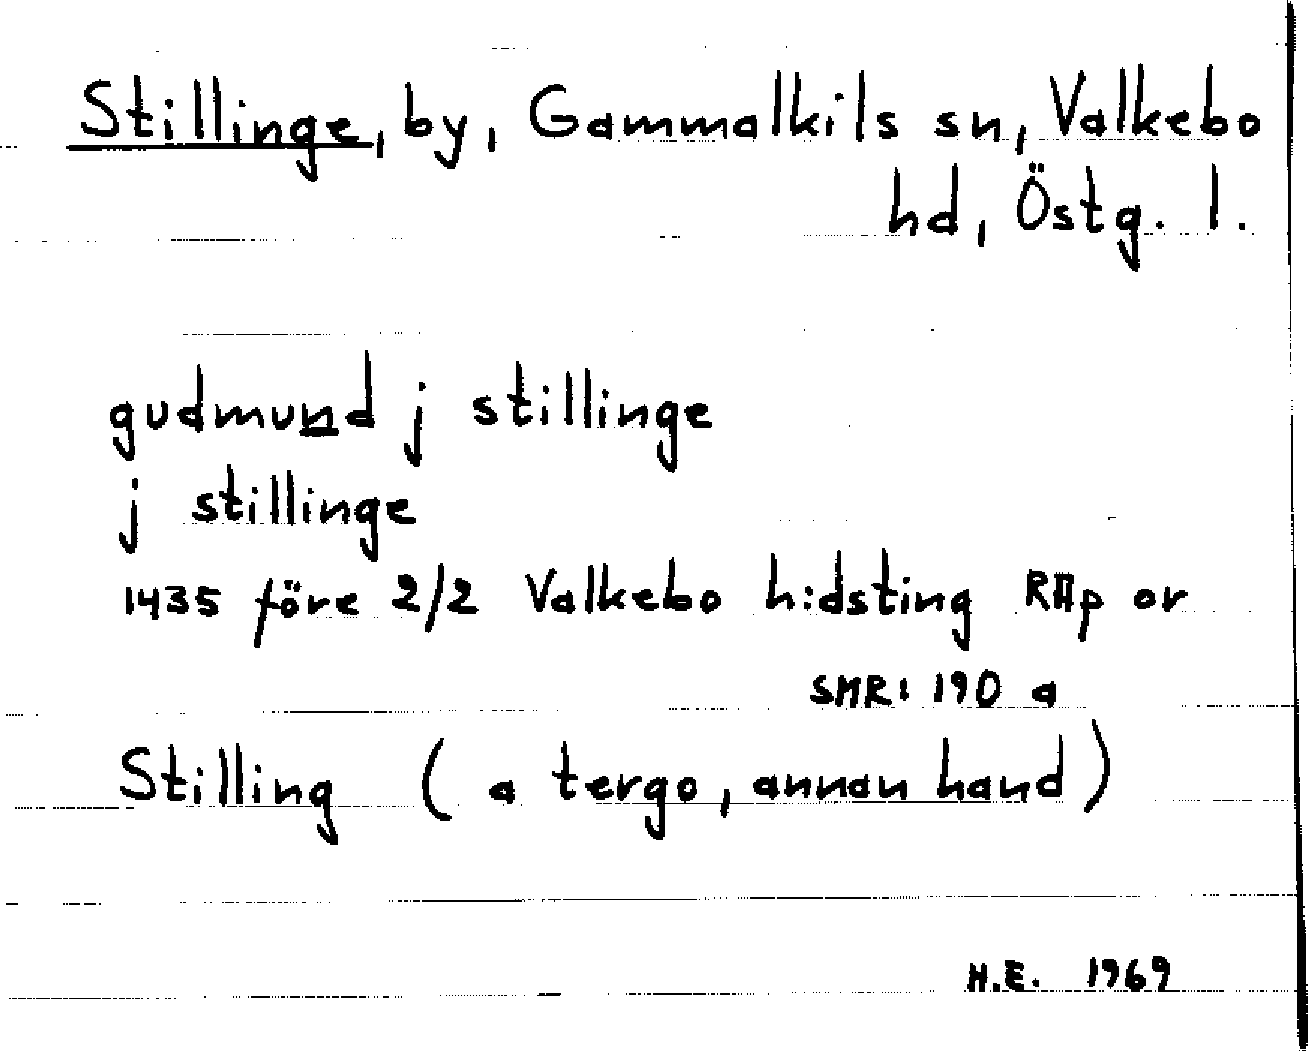 Stillinge, by, Gammalkils sn, Valkebo
hd, Östg. l.
gudmund j stillinge
j stillinge
1435 före 2/2 Valkebo h:dsting RAp or
SMR: 190 a
Stilling (a tergo, annan hand)
H.E. 1969